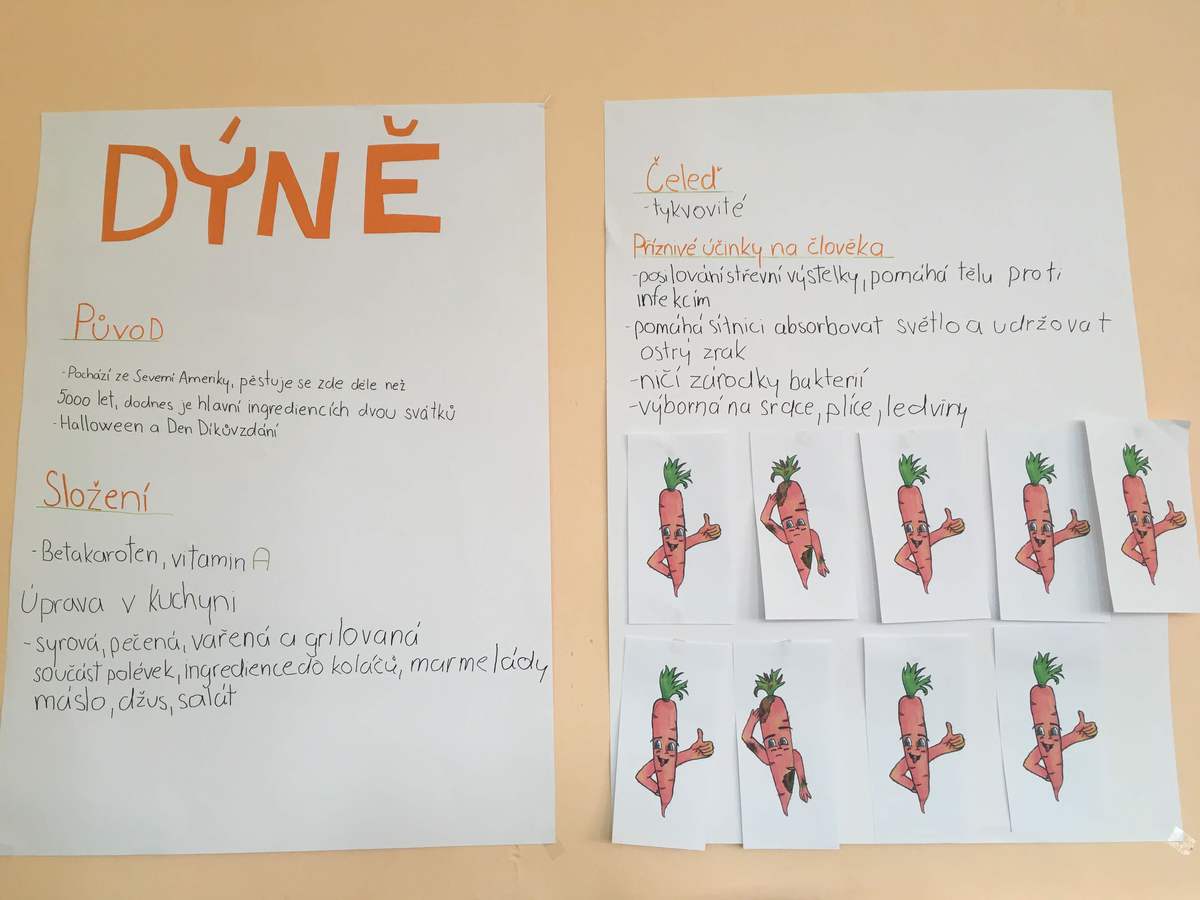 DÝNĚ
Původ
-Pochází ze Severní Ameriky, pěstuje se zde déle než
5000 let, dodnes je hlavní ingrediencích dvou svátků
-Halloween a Den Díkůvzdání
Složení
-Betakaroten, vitamin A
Úprava v kuchyni
-syrová, pečená, vařená a grilovaná
součást polévek, ingredience do koláčů, marmelády
máslo, džus, salát
Čeleď
-tykvovité
Příznivé účinky na člověka
-posilování střevní výstelky, pomáhá tělu proti
infekcím
-pomáhá sítnici absorbovat světlo a udržovat
ostrý zrak
-ničí zárodky bakterií
-výborná na srdce, plíce, ledviny